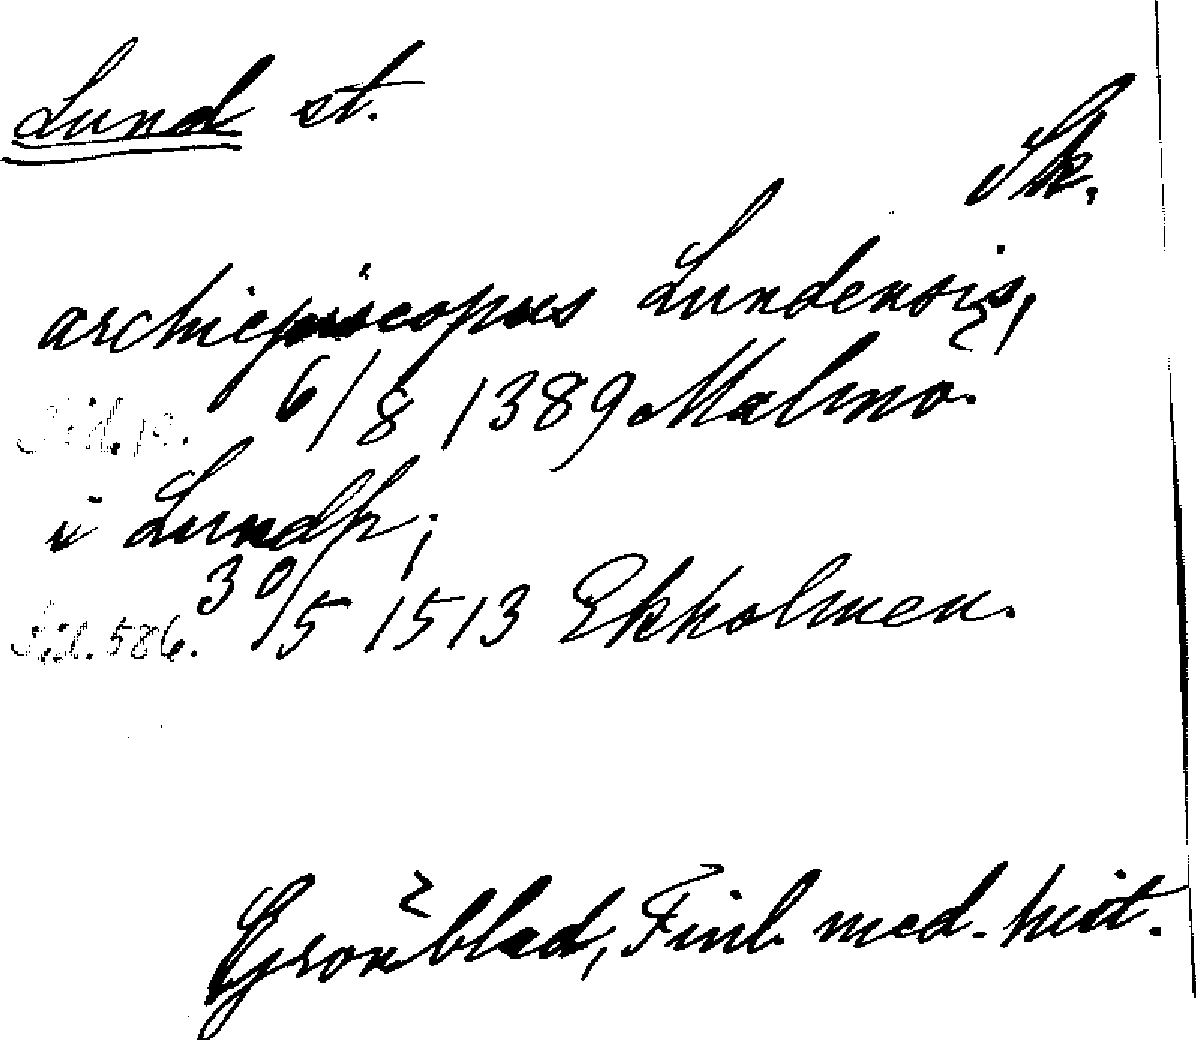 Lund st.
Sk.
archiepiscopus Lundensis,
6/8 1389 Malmö.
i Lundh;
Sid. 586. 30/5 1513 Ekholmen.
Grönblad, Finl. med. hist.